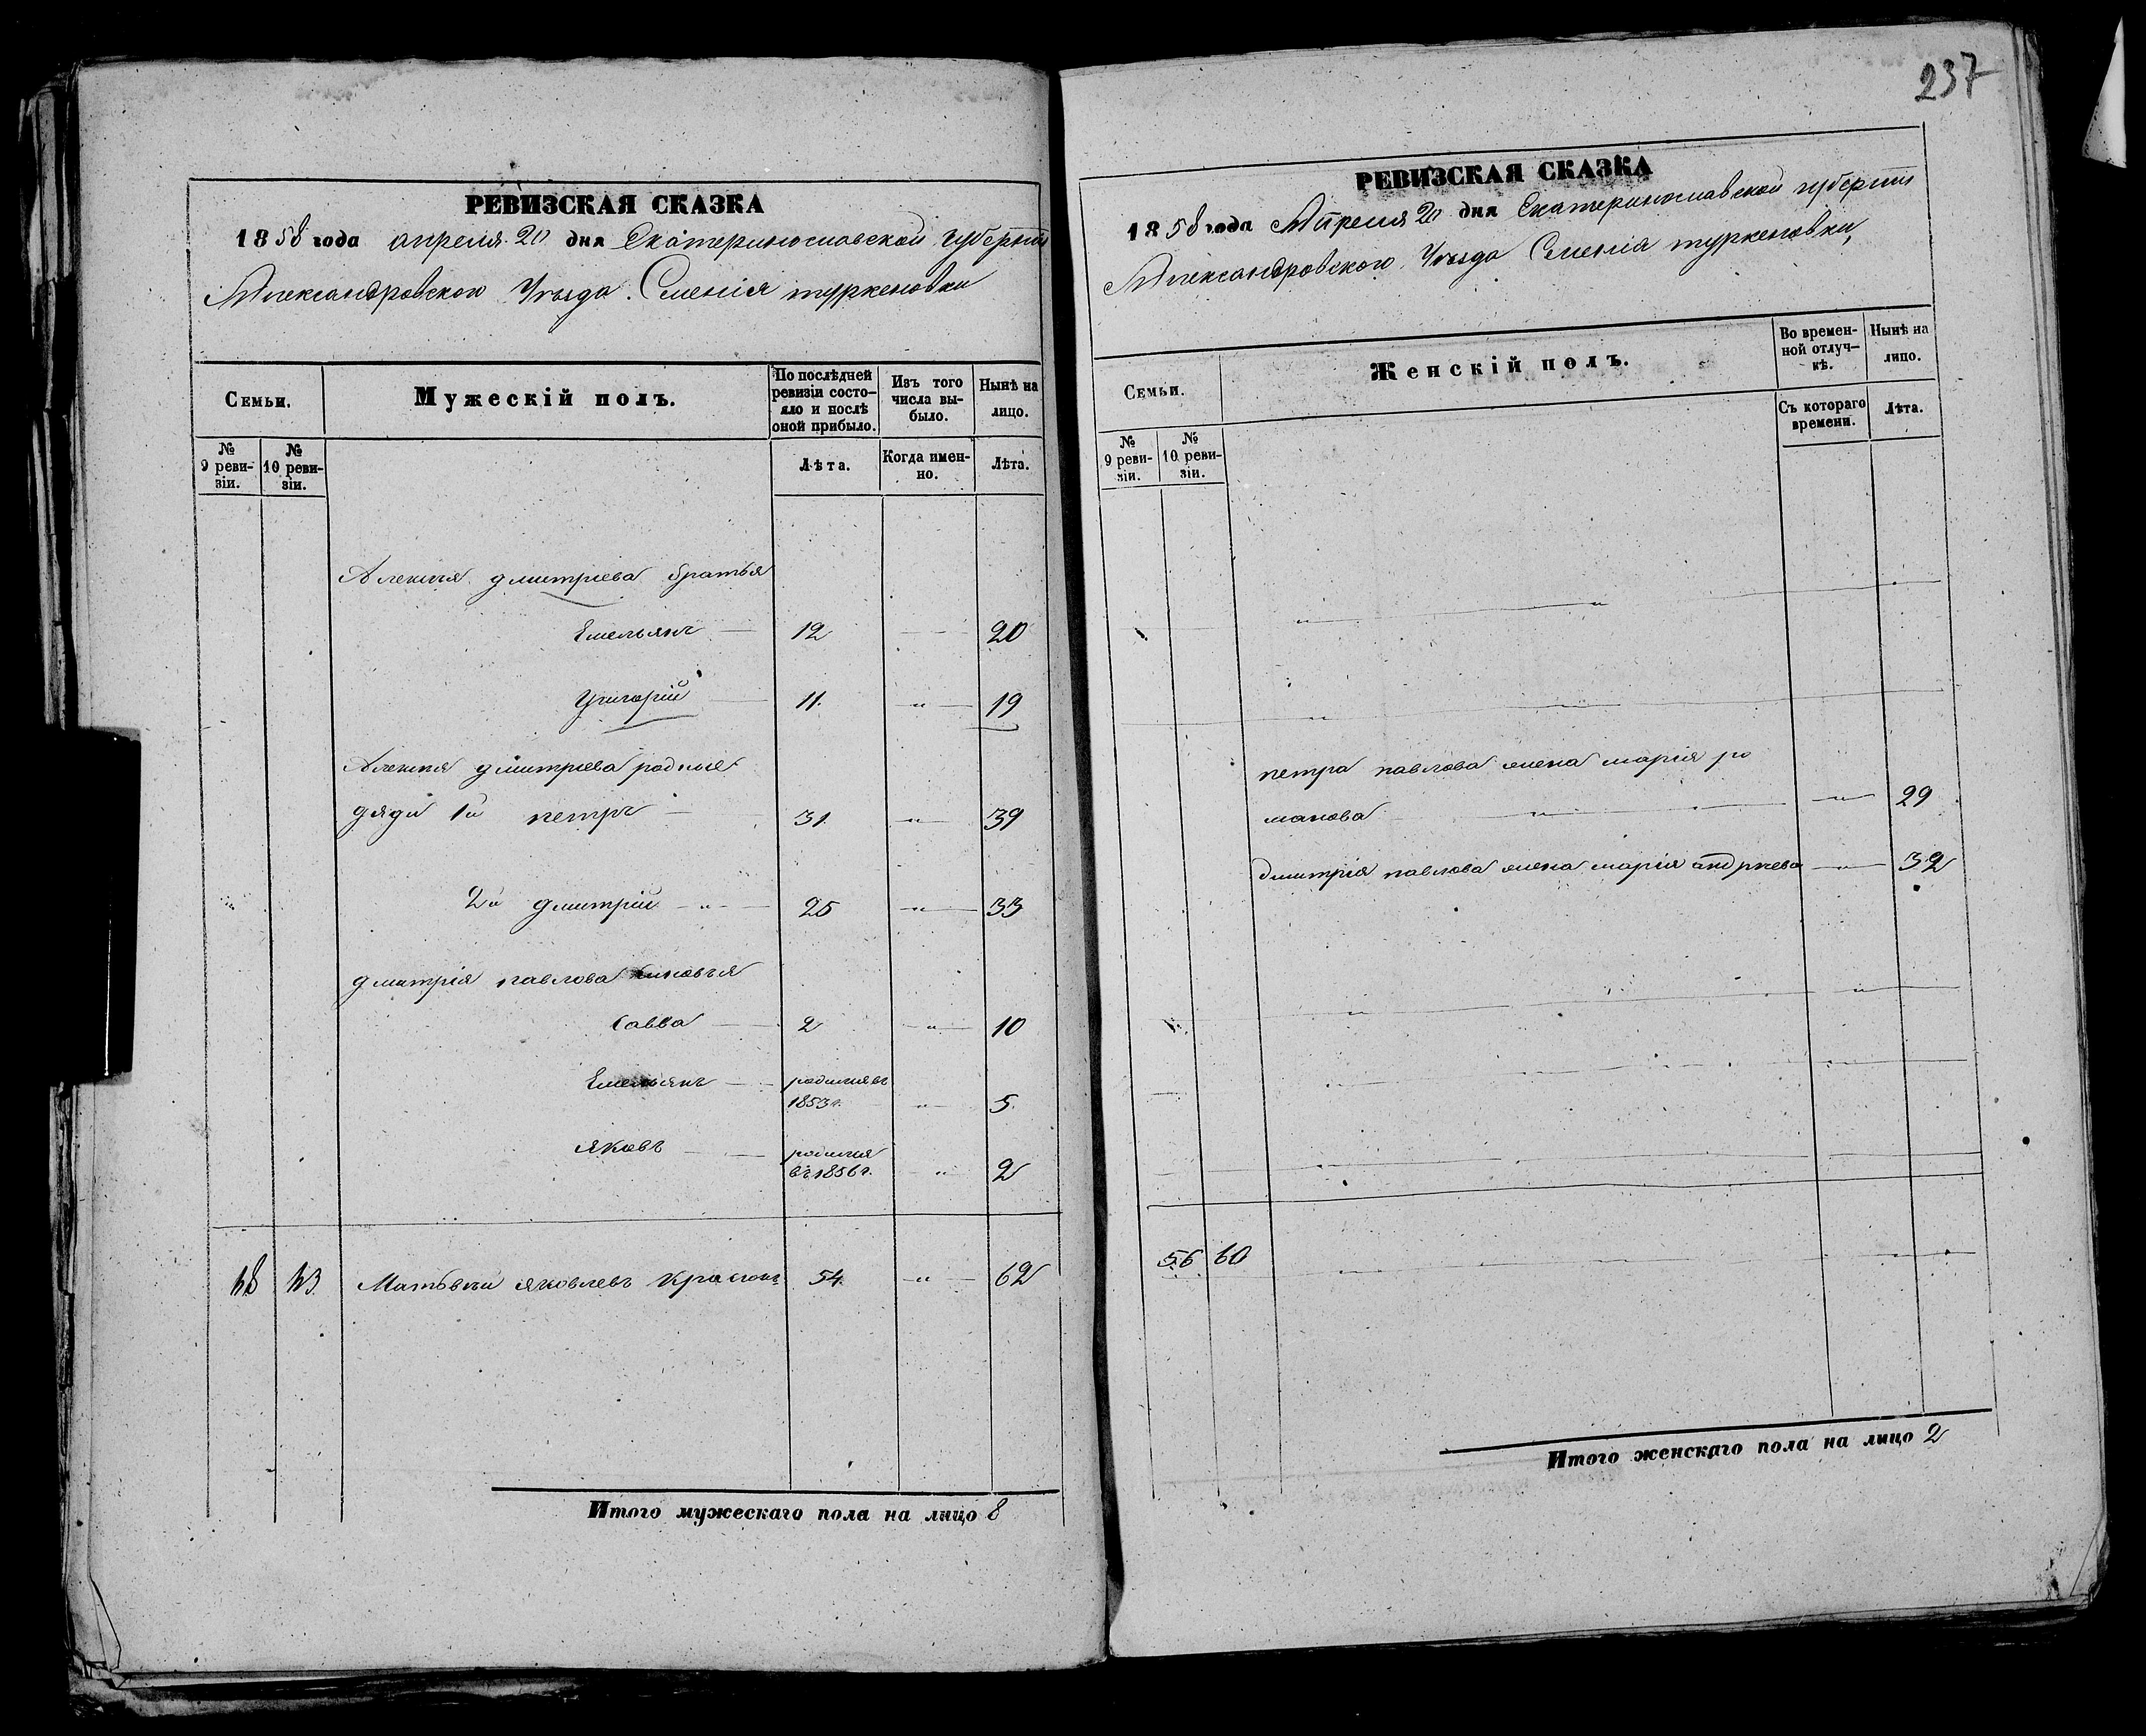 237
РЕВИЗСКАЯ СКАЗКА
1858 года апреля 20 дня Екатеринославской губерніи
Александровского Уѣзда. Селенія туркеновки
Семьи.
Мужескій полъ.
По послѣдней ревизіи состояло и послѣ оной прибыло.
Изъ того числа выбыло.
Нынѣ на лицо.
№ 9 ревизіи.
№ 10 ревизіи.
Лѣта.
Когда именно.
Лѣта.
Алексѣя дмитріева братья
Емельянъ 12 20
Григорій 11. " 19
Алексѣя дмитріева родные
дяди 1й петръ 31. " 39
2й дмитрій " 25 " 33
дмитрія павлова сыновья
Савва 2 " 10
Емельянъ родился въ 1853 г. " 5.
Яковъ родился въ 1856 г. " 2
Матвѣй яковлевъ 54. " 62
Итого мужескаго пола на лицо 8
РЕВИЗСКАЯ СКАЗКА
1858 года Апреля 20 дня Екатеринославской губерніи
Александровского Уѣзда Селенія туркеновки,
Семьи.
Женскій полъ.
Во временной отлучкѣ.
Нынѣ на лицо.
№ 9 ревизіи.
№ 10 ревизіи.
Съ котораго времени.
Лѣта.
петра павлова жена марія ро
манова " " 29
дмитрія павлова жена марія андреева " 32
56 60
Итого женскаго пола на лицо 2